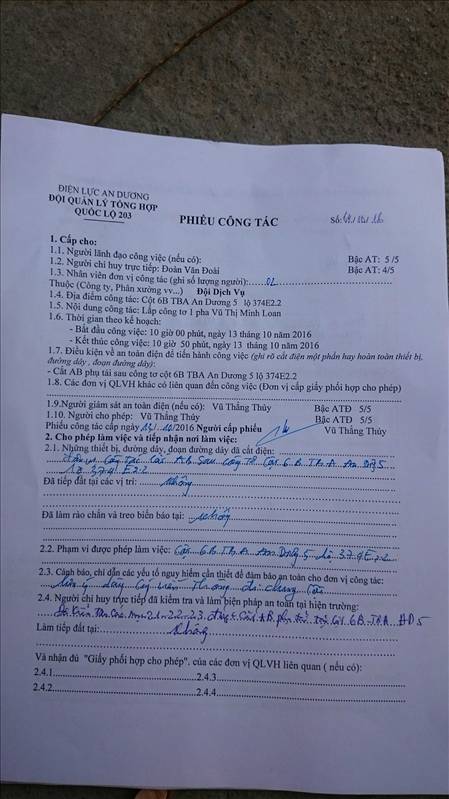 ĐIỆN LỰC AN DƯƠNG
ĐỘI QUẢN LÝ TỔNG HỢP
QUỐC LỘ 203
PHIẾU CÔNG TÁC
Số:
1. Cấp cho:
1.1. Người lãnh đạo công việc (nếu có): Bậc AT: 5 /5
1.2. Người chỉ huy trực tiếp: Đoàn Văn Đoài Bậc AT: 4/5
1.3. Nhân viên đơn vị công tác (ghi số lượng người):...02
Thuộc (Công ty, Phân xưởng vv...) Đội Dịch Vụ
1.4. Địa điểm công tác: Cột 6B TBA An Dương 5 lộ 374E2.2
1.5. Nội dung công tác: Lắp công tơ 1 pha Vũ Thị Minh Loan
1.6. Thời gian theo kế hoạch:
- Bắt đầu công việc: 10 giờ 00 phút, ngày 13 tháng 10 năm 2016
- Kết thúc công việc: 10 giờ 50 phút, ngày 13 tháng 10 năm 2016
1.7. Điều kiện về an toàn điện để tiến hành công việc (ghi rõ cắt điện một phần hay hoàn toàn thiết bị, đường dây , đoạn đường dây):
- Cắt AB phụ tải sau công tơ cột 6B TBA An Dương 5 lộ 374E2.2
1.8. Các đơn vị QLVH khác có liên quan đến công việc (Đơn vị cấp giấy phối hợp cho phép)
1.9.Người giám sát an toàn điện (nếu có): Vũ Thăng Thưởng Bậc ATĐ 5/5
1.10. Người cho phép: Vũ Thăng Thưởng Bậc ATĐ 5/5
Phiếu công tác cấp ngày 13/10/2016 Người cấp phiếu Vũ Thăng Thưởng
2. Cho phép làm việc và tiếp nhận nơi làm việc:
2.1. Những thiết bị, đường dây, đoạn đường dây đã cắt điện:
AB sau công tơ cột 6B TBA An Dg 5
lộ 374 E2.2
Đã tiếp đất tại các vị trí: Không
Đã làm rào chắn và treo biển báo tại: Không
2.2. Phạm vi được phép làm việc: Cột 6B TBA An Dg 5 lộ 374E2.2
2.3. Cảnh báo, chỉ dẫn các yếu tố nguy hiểm cần thiết để đảm bảo an toàn cho đơn vị công tác:
2.4. Người chỉ huy trực tiếp đã kiểm tra và làm biện pháp an toàn tại hiện trường:
6B TBA AD5
Làm tiếp đất tại: Không
Và nhận đủ "Giấy phối hợp cho phép". của các đơn vị QLVH liên quan ( nếu có):
2.4.1 2.4.3
2.4.2 2.4.4